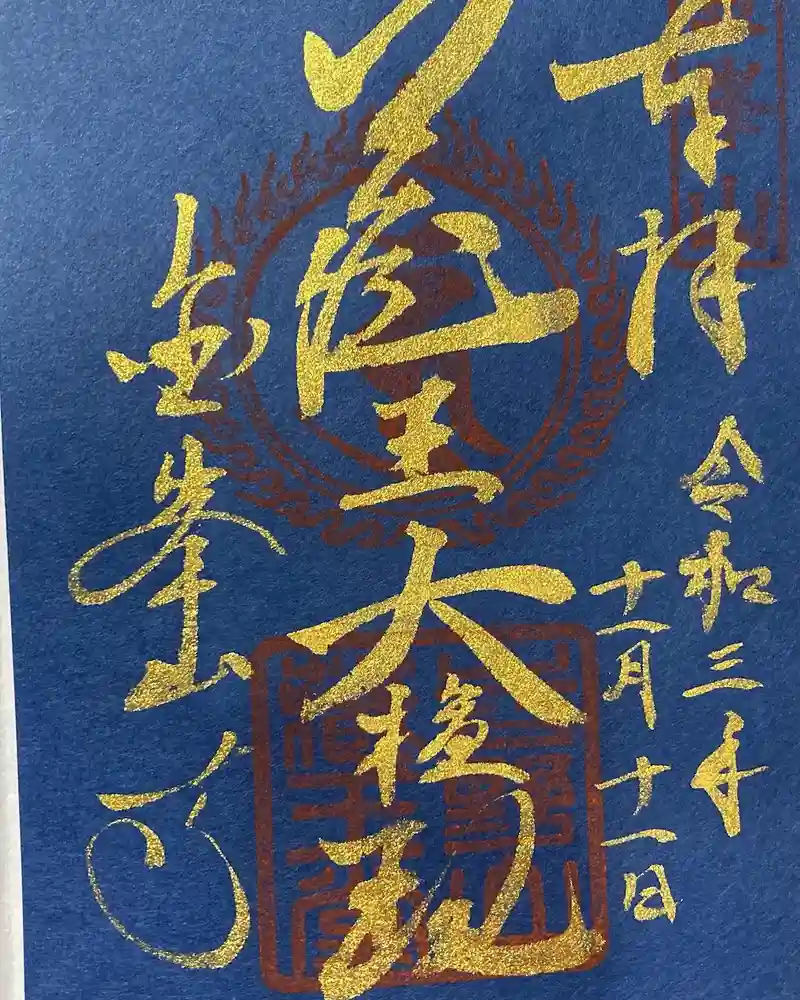 奉拝
令和三年
十一月十一日
蔵王大権現
金峯山寺